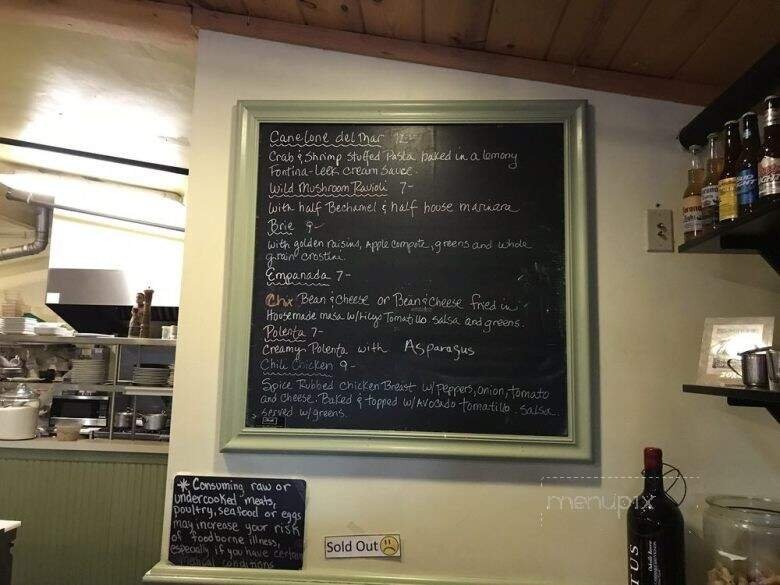 Canelone del Mar 12-
Crab & Shrimp stuffed Pasta baked in a lemony
Fontina-Leek cream sauce.
Wild Mushroom Ravioli 7-
with half Bechamel & half house marinara
Brie 9-
with golden raisins, Apple compote, greens and whole
grain crostini.
Empanada 7-
Chx Bean & Cheese or Bean & Cheese fried in
Housemade masa w/ Tomatillo salsa and greens.
Polenta 7-
Creamy Polenta with Asparagus
Chili Chicken 9-
Spice Rubbed Chicken Breast w/ Peppers, onion, tomato
and cheese. Baked & topped w/ Avocado tomatillo salsa
served w/ greens.
* Consuming raw or
undercooked meats,
poultry, seafood or eggs
may increase your risk
of foodborne illness,
especially if you have certain
medical conditions
Sold Out
menupix
TUS